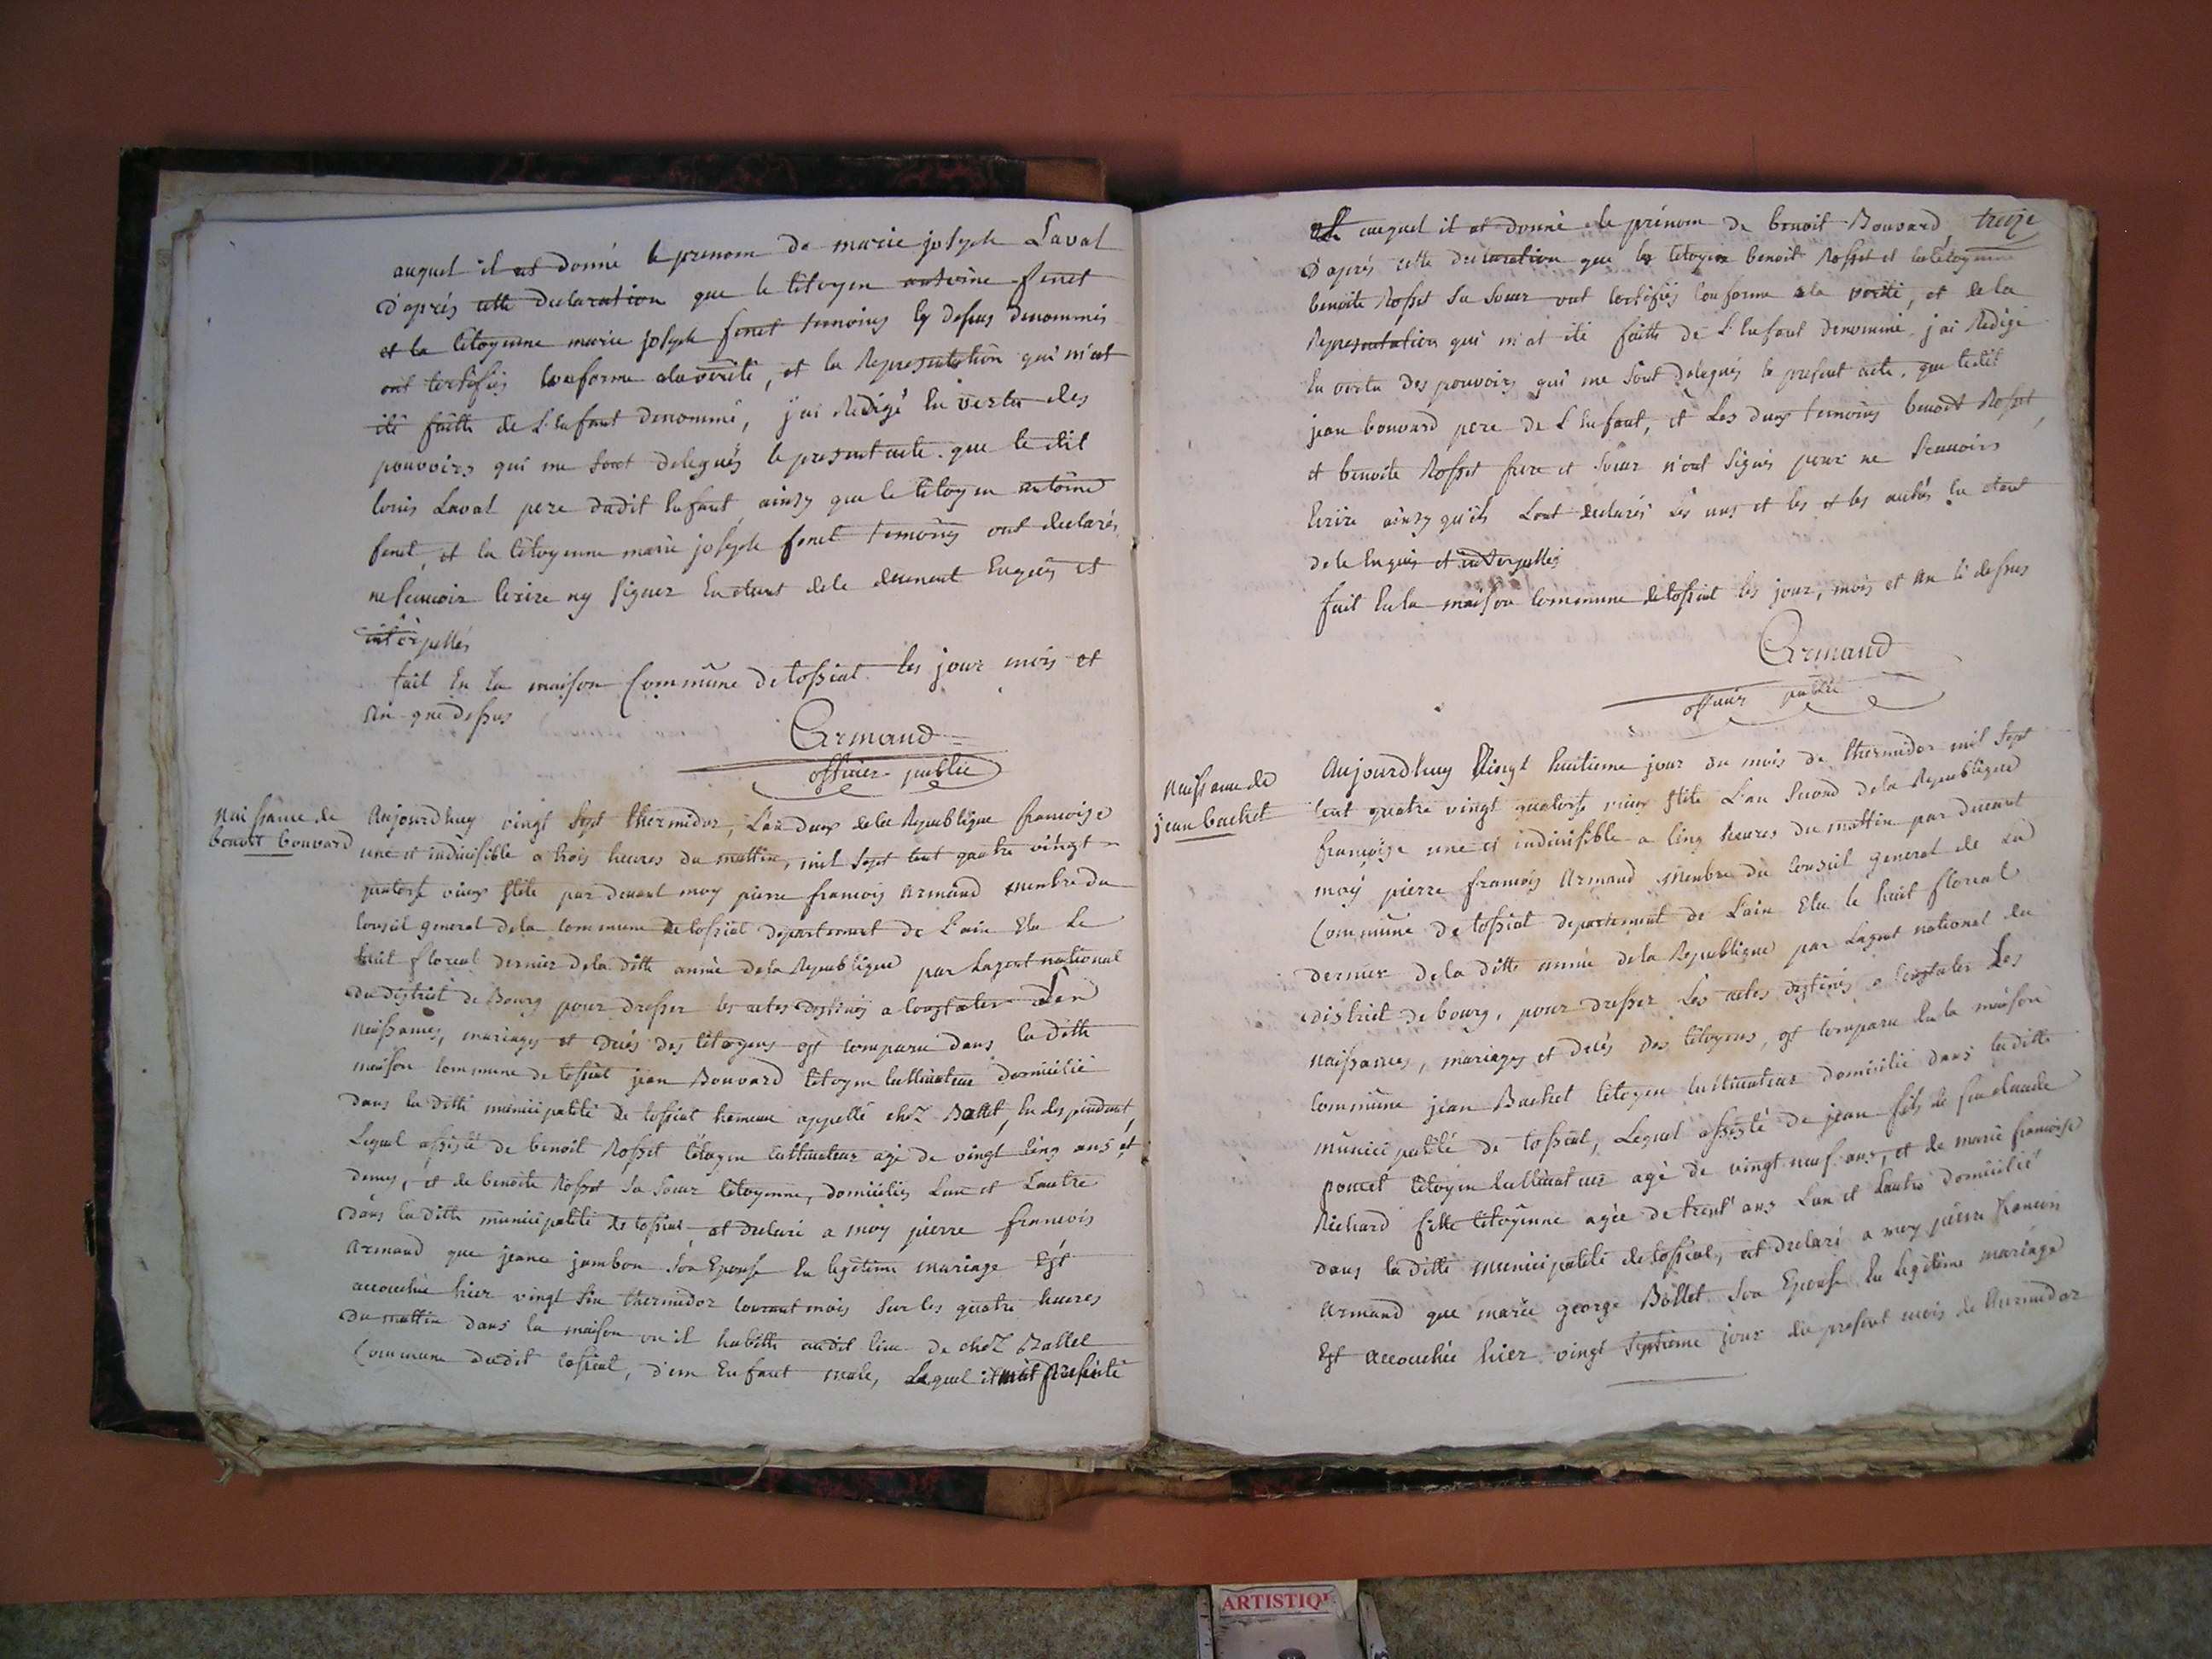 auquel il at donné le prenom de marie joseph Laval
d'aprés cette declaration que le citoyen antoine fenet
et la citoyenne marie joseph fenet temoins cy dessus denommés
ont certifiés conforme alaverité, et la Representation qui m'at
été faitte de L'enfant denommé, j'ai Redigé En vertu des
pouvoirs qui me sont delegués le present acte. que le dit
louis Laval pere dudit Enfant, ainsy que le citoyen antoine
fenet, et la citoyenne marie joseph fenet temoins ont declarés
ne scauoir Ecrire ny signer En etant dele duement Enquis et
interpellés
fait En la maison Commune de tossiat les jour mois et
An que dessus
Armand
officier public
Naissance de
benoit bouvard
Aujourdhuy vingt sept thermidor, L'an deux dela Republique francoise
une et indivisible a trois heures du mattin, mil sept cent quatre vingt
quatorse vieux stile par devant moy pierre francois Armand membre du
Conseil general dela commune de tossiat departement de L'ain Elu Le
huit floreal dernier dela ditte année dela Republique par Lagent national
du district de Bourg pour dresser les actes destinés a Constater Les
Naissances, mariages et decès des citoyens est comparu dans la ditte
maison Commune de tossiat jean Bouvard citoyen cultivateur domicilié
dans la ditte municipalité de tossiat hameau appellé chez Ballet, En dependant,
Lequel assisté de benoit Rosset citoyen cultivateur agé de vingt cinq ans, et
demy, et de benoite Rosset sa soeur citoyenne, domiciliés L'un et L'autre
dans la ditte municipalité de tossiat, at declaré a moy pierre francois
Armand que jeane jambon son Epouse En legitime mariage Est
accouchée hier vingt six thermidor courant mois sur les quatre heures
du mattin dans la maison ou il habitte audit lieu de chez Ballet
Commune dudit tossiat, d'un Enfant male, Lequel il m'at presenté
et auquel il at donné le prénom de benoit Bouvard, treize
D'aprés cette declaration que les citoyens benoit Rosset et la citoyenne
benoite Rosset sa soeur ont certifiés conforme ala verité, et dela
Representation qui m'at été faitte de L'enfant denommé j'ai Redigé
En vertu des pouvoirs qui me sont délegués le present acte. que ledit
jean bouvard pere de L'enfant, et Les deux temoins benoit Rosset,
et benoite Rosset frere et soeur n'ont signés pour ne scauoirs
Ecrire ainsy qu'ils L'ont declarés les uns et les et les autres En etant
dele Enquis et interpellés
fait En la maison Commune de tossiat les jour, mois et An ci dessus
Armand
officier public
Naissance de
jean bachet
Aujourdhuy Vingt huitieme jour du mois de thermidor mil sept
Cent quatre vingt quatorse vieux stile L'an second dela Republique
francoise une et indivisible a cinq heures du mattin par devant
moy pierre francois Armand Membre du Conseil general de La
Commune de tossiat departement de L'ain Elu le huit floreal
dernier dela ditte année dela Republique par Lagent national du
district de bourg, pour dresser Les actes destinés a Constater Les
naissances, mariages et decès des citoyens, est comparu En la maison
Commune jean Bachet citoyen cultivateur domicilié dans laditte
municipalité de tossiat, Lequel assisté de jean fils de feu claude
poncet citoyen Cultivateur agé de vingt neuf ans, et de marie francoise
Richard fille citoyenne agée de trent' ans L'un et L'autre domicilié
dans la ditte municipalité de tossiat, at declaré a moy pierre francois
Armand que marie george Bollet son Epouse En legitime mariage
Est accouchée hier vingt septieme jour du present mois de thermidor
ARTISTIQ